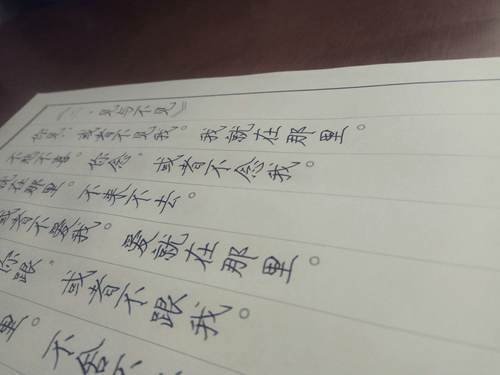 《见与不见》
你见。或者不见我。我就在那里。
不悲不喜。你念。或者不念我。
就在那里。不来不去。
或者不爱我。爱就在那里。
你跟。或者不跟我。
里。不舍不